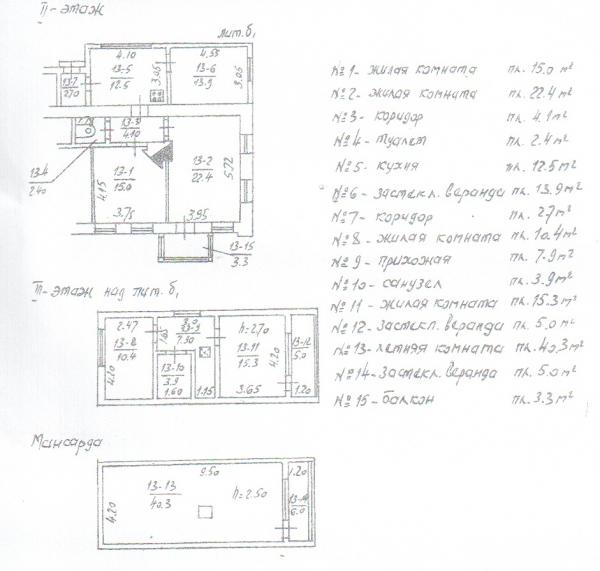 II-этаж
лит. б₁
4.10
13-5
12.5
3.05
4.55
13-6
13.9
3.05
13-7
2.70
13-3
4.10
13-4
2.40
13-1
15.0
4.15
3.75
13-2
22.4
5.72
3.95
13-15
3.3
№1 - жилая комната пл. 15.0 м²
№2 - жилая комната пл. 22.4 м²
№3 - коридор пл. 4.1 м²
№4 - туалет пл. 2.4 м²
№5 - кухня пл. 12.5 м²
№6 - застекл. веранда пл. 13.9 м²
№7 - коридор пл. 27 м²
№8 - жилая комната пл. 10.4 м²
№9 - прихожая пл. 7.9 м²
№10 - санузел пл. 3.9 м²
№11 - жилая комната пл. 15.3 м²
№12 - застекл. веранда пл. 5.0 м²
№13 - летняя комната пл. 40.3 м²
№14 - застекл. веранда пл. 5.0 м²
№15 - балкон пл. 3.3 м²
III-этаж над лит. б₁
2.47
13-8
10.4
4.20
1.65
7.90
13-10
3.9
1.60
1.15
h=2.70
13-11
15.3
4.20
3.65
13-12
5.0
1.20
Мансарда
9.50
13-13
40.3
4.20
h=2.50
1.20
13-14